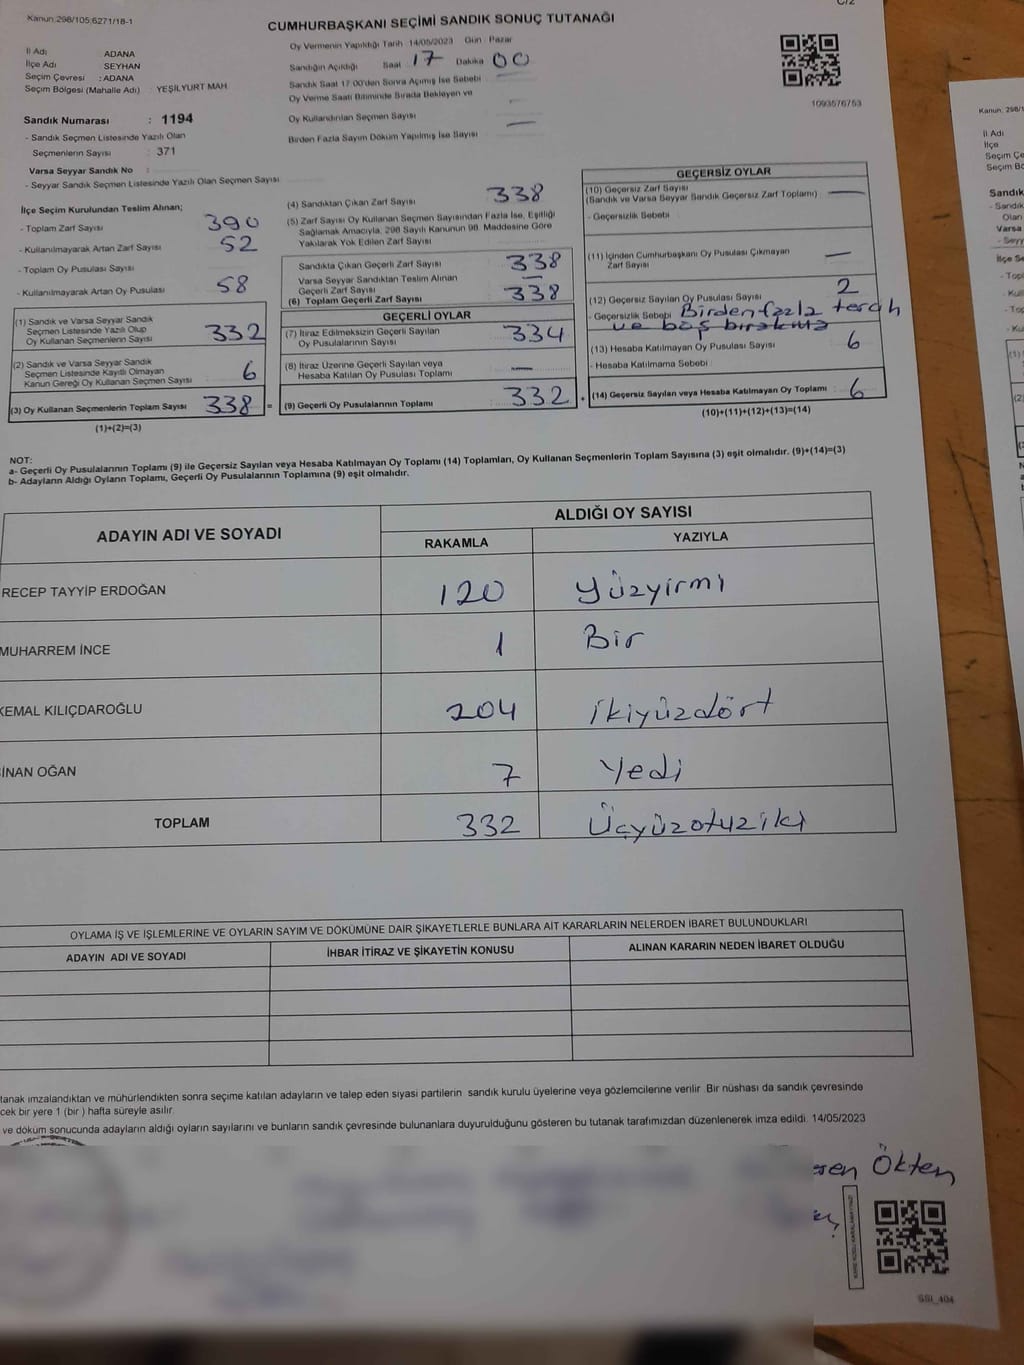 C/2
Kanun:298/105;6271/18-1
CUMHURBAŞKANI SEÇİMİ SANDIK SONUÇ TUTANAĞI
İl Adı ADANA
İlçe Adı SEYHAN
Seçim Çevresi : ADANA
Seçim Bölgesi (Mahalle Adı) : YEŞİLYURT MAH
Oy Vermenin Yapıldığı Tarih 14/05/2023 Gün : Pazar
Sandığın Açıldığı Saat 17 Dakika 00
Sandık Saat 17:00'den Sonra Açımış İse Sebebi
Oy Verme Saati Bitiminde Sırada Bekleyen ve
Oy Kullandırılan Seçmen Sayısı
Birden Fazla Sayım Döküm Yapılmış İse Sayısı
1093576753
Sandık Numarası : 1194
- Sandık Seçmen Listesinde Yazılı Olan
Seçmenlerin Sayısı : 371
Varsa Seyyar Sandık No :
- Seyyar Sandık Seçmen Listesinde Yazılı Olan Seçmen Sayısı
İlçe Seçim Kurulundan Teslim Alınan;
- Toplam Zarf Sayısı 390
- Kullanılmayarak Artan Zarf Sayısı 52
- Toplam Oy Pusulası Sayısı
- Kullanılmayarak Artan Oy Pusulası 58
(1) Sandık ve Varsa Seyyar Sandık
Seçmen Listesinde Yazılı Olup
Oy Kullanan Seçmenlerin Sayısı 332
(2) Sandık ve Varsa Seyyar Sandık
Seçmen Listesinde Kayıtlı Olmayan
Kanun Gereği Oy Kullanan Seçmen Sayısı 6
(3) Oy Kullanan Seçmenlerin Toplam Sayısı 338 =
(1)+(2)=(3)
(4) Sandıktan Çıkan Zarf Sayısı 338
(5) Zarf Sayısı Oy Kullanan Seçmen Sayısından Fazla İse, Eşitliği
Sağlamak Amacıyla, 298 Sayılı Kanunun 98. Maddesine Göre
Yakılarak Yok Edilen Zarf Sayısı
Sandıkta Çıkan Geçerli Zarf Sayısı 338
Varsa Seyyar Sandıktan Teslim Alınan
Geçerli Zarf Sayısı —
(6) Toplam Geçerli Zarf Sayısı 338
GEÇERLİ OYLAR
(7) İtiraz Edilmeksizin Geçerli Sayılan
Oy Pusulalarının Sayısı 334
(8) İtiraz Üzerine Geçerli Sayılan veya
Hesaba Katılan Oy Pusulası Toplamı —
(9) Geçerli Oy Pusulalarının Toplamı 332 +
GEÇERSİZ OYLAR
(10) Geçersiz Zarf Sayısı
(Sandık ve Varsa Seyyar Sandık Geçersiz Zarf Toplamı) —
- Geçersizlik Sebebi :
(11) İçinden Cumhurbaşkanı Oy Pusulası Çıkmayan
Zarf Sayısı —
(12) Geçersiz Sayılan Oy Pusulası Sayısı 2
- Geçersizlik Sebebi Birden fazla tercih
ve boş bırakma
(13) Hesaba Katılmayan Oy Pusulası Sayısı 6
- Hesaba Katılmama Sebebi :
(14) Geçersiz Sayılan veya Hesaba Katılmayan Oy Toplamı : 6
(10)+(11)+(12)+(13)=(14)
NOT:
a- Geçerli Oy Pusulalarının Toplamı (9) ile Geçersiz Sayılan veya Hesaba Katılmayan Oy Toplamı (14) Toplamları, Oy Kullanan Seçmenlerin Toplam Sayısına (3) eşit olmalıdır. (9)+(14)=(3)
b- Adayların Aldığı Oyların Toplamı, Geçerli Oy Pusulalarının Toplamına (9) eşit olmalıdır.
ADAYIN ADI VE SOYADI
ALDIĞI OY SAYISI
RAKAMLA YAZIYLA
RECEP TAYYİP ERDOĞAN 120 Yüzyirmi
MUHARREM İNCE 1 Bir
KEMAL KILIÇDAROĞLU 204 İkiyüzdört
İNAN OĞAN 7 Yedi
TOPLAM 332 Üçyüzotuziki
OYLAMA İŞ VE İŞLEMLERİNE VE OYLARIN SAYIM VE DÖKÜMÜNE DAİR ŞİKAYETLERLE BUNLARA AİT KARARLARIN NELERDEN İBARET BULUNDUKLARI
ADAYIN ADI VE SOYADI İHBAR İTİRAZ VE ŞİKAYETİN KONUSU ALINAN KARARIN NEDEN İBARET OLDUĞU
tanak imzalandıktan ve mühürlendikten sonra seçime katılan adayların ve talep eden siyasi partilerin sandık kurulu üyelerine veya gözlemcilerine verilir Bir nüshası da sandık çevresinde
cek bir yere 1 (bir ) hafta süreyle asılır.
ve döküm sonucunda adayların aldığı oyların sayılarını ve bunların sandık çevresinde bulunanlara duyurulduğunu gösteren bu tutanak tarafımızdan düzenlenerek imza edildi. 14/05/2023
Ökten
GSI_404
Kanun: 298/1
İl Adı
İlçe
Seçim Çe
Seçim Bö
Sandık
- Sandık
Olan
Varsa
- Seyy
İlçe Se
- Top
- Kul
- Top
- Ku
(1)
(2)